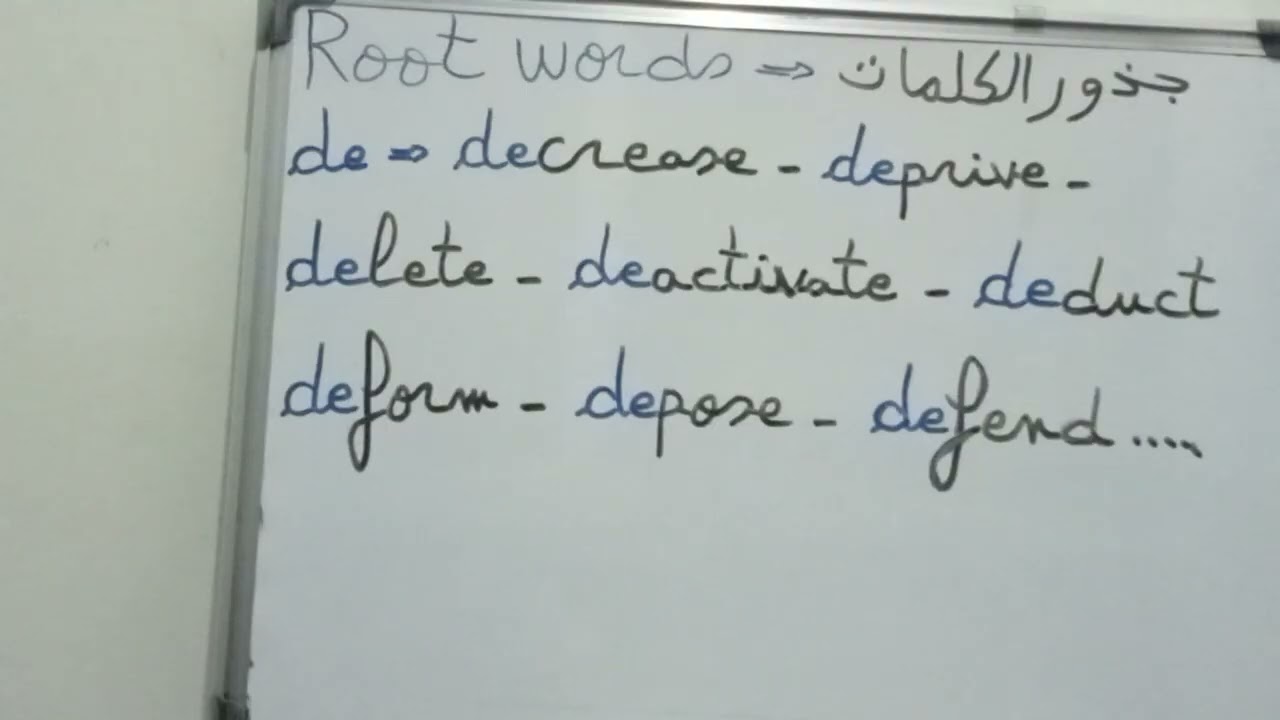 Root words ⇒ جذور الكلمات
de ⇒ decrease - deprive -
delete - deactivate - deduct
deform - depose - defend ....